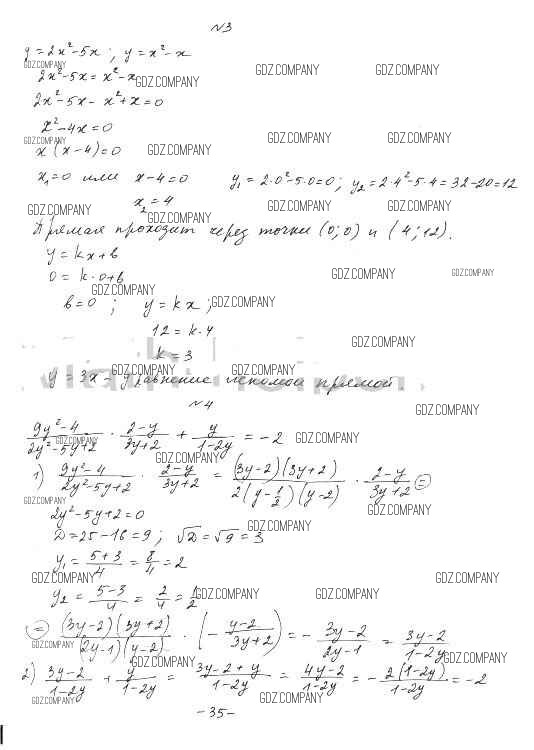 N3
y = 2x² - 5x ; y = x² - x
2x² - 5x = x² - x
2x² - 5x - x² + x = 0
x² - 4x = 0
x (x - 4) = 0
x₁ = 0 или x - 4 = 0 y₁ = 2·0² - 5·0 = 0 ; y₂ = 2·4² - 5·4 = 32 - 20 = 12
x₂ = 4
Прямая проходит через точки (0; 0) и (4; 12).
y = kx + b
0 = k·0 + b
b = 0 ; y = kx ;
12 = k·4
k = 3
y = 3x - уравнение искомой прямой.
N4
(9y² - 4)/(2y² - 5y + 2) · (2 - y)/(3y + 2) + y/(1 - 2y) = -2
1) (9y² - 4)/(2y² - 5y + 2) · (2 - y)/(3y + 2) = ((3y - 2)(3y + 2))/(2(y - 1/2)(y - 2)) · (2 - y)/(3y + 2) =
2y² - 5y + 2 = 0
D = 25 - 16 = 9 ; √D = √9 = 3
y₁ = (5 + 3)/4 = 8/4 = 2
y₂ = (5 - 3)/4 = 2/4 = 1/2
= ((3y - 2)(3y + 2))/((2y - 1)(y - 2)) · (- (y - 2)/(3y + 2)) = - (3y - 2)/(2y - 1) = (3y - 2)/(1 - 2y)
2) (3y - 2)/(1 - 2y) + y/(1 - 2y) = (3y - 2 + y)/(1 - 2y) = (4y - 2)/(1 - 2y) = - (2(1 - 2y))/(1 - 2y) = -2
- 35 -
GDZ.COMPANY